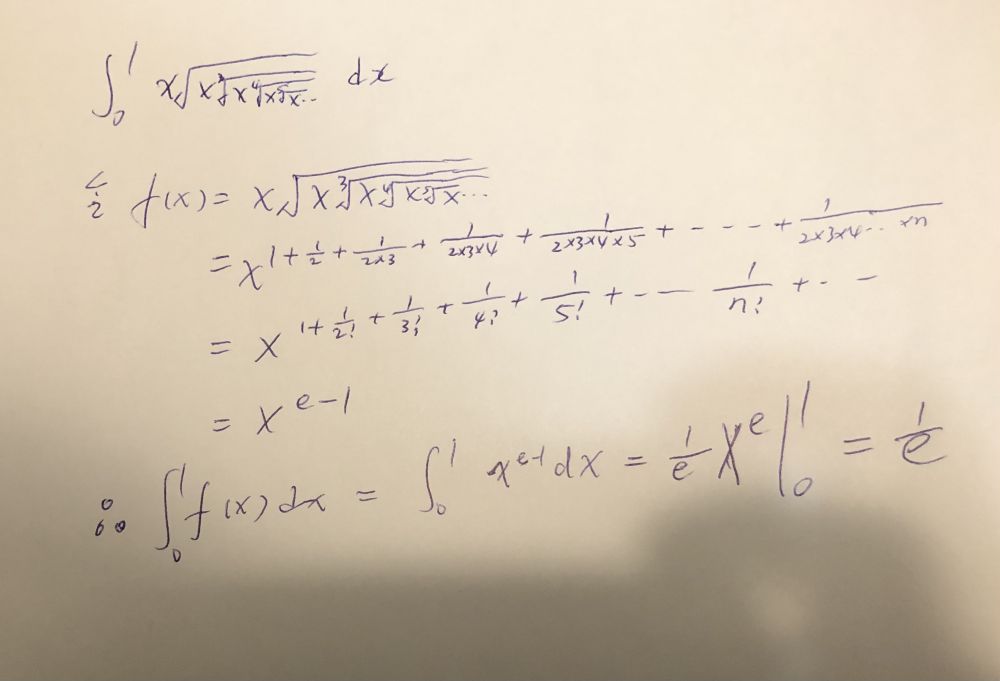 ∫₀¹ x√(x∛(x∜(x⁵√(x···)))) dx
令 f(x) = x√(x∛(x∜(x⁵√(x···))))
= x^(1 + 1/2 + 1/(2×3) + 1/(2×3×4) + 1/(2×3×4×5) + ---- + 1/(2×3×4···×n))
= x^(1 + 1/2! + 1/3! + 1/4! + 1/5! + --- 1/n! + ---)
= x^(e-1)
∴ ∫₀¹ f(x) dx = ∫₀¹ x^(e-1) dx = 1/e x^e |₀¹ = 1/e